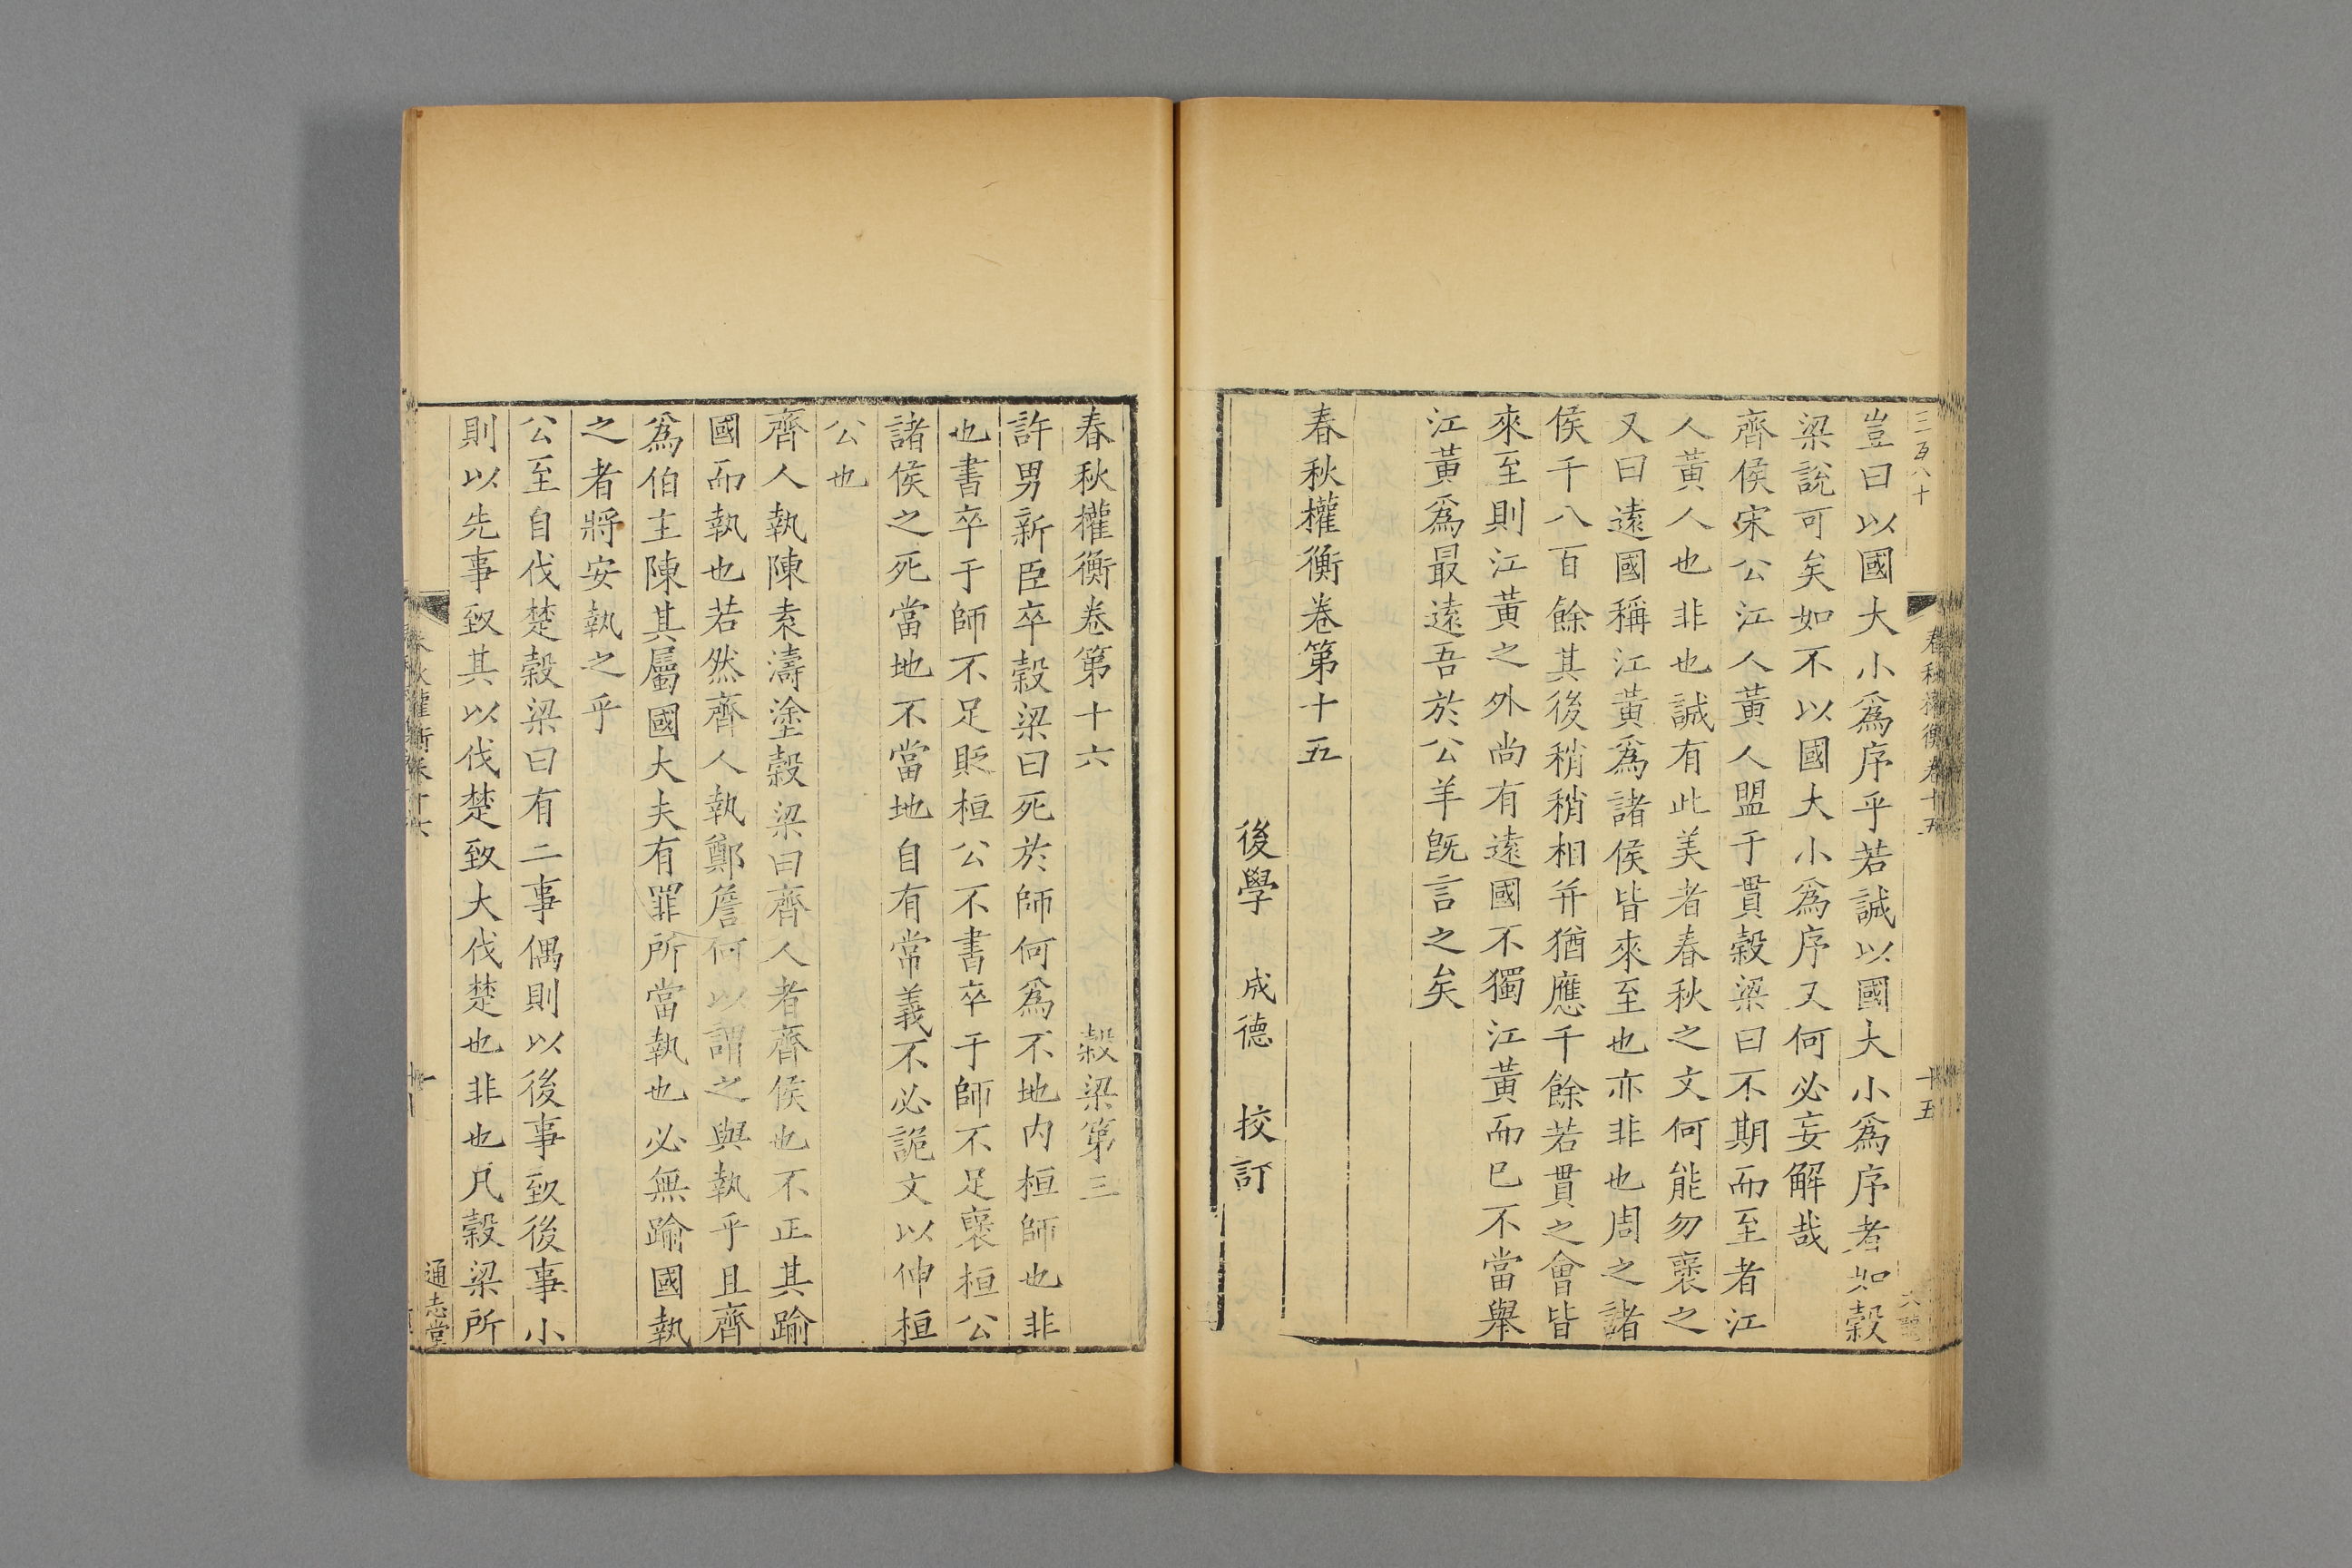 三百八十
春秋權衡卷十五
十五
豈曰以國大小爲序乎若誠以國大小爲序者如穀
梁說可矣如不以國大小爲序又何必妄解哉
齊侯宋公江人黃人盟于貫穀梁曰不期而至者江
人黃人也非也誠有此美者春秋之文何能勿襃之
又曰遠國稱江黃爲諸侯皆來至也亦非也周之諸
侯千八百餘其後稍稍相并猶應千餘若貫之會皆
來至則江黃之外尚有遠國不獨江黃而已不當舉
江黃爲最遠吾於公羊旣言之矣
春秋權衡卷第十五
後學 成德 挍訂
春秋權衡卷第十六 穀梁第三
許男新臣卒穀梁曰死於師何爲不地内桓師也非
也書卒于師不足貶桓公不書卒于師不足襃桓公
諸侯之死當地不當地自有常義不必詭文以伸桓
公也
齊人執陳袁濤塗穀梁曰齊人者齊侯也不正其踰
國而執也若然齊人執鄭詹何以謂之與執乎且齊
爲伯主陳其屬國大夫有罪所當執也必無踰國執
之者將安執之乎
公至自伐楚穀梁曰有二事偶則以後事致後事小
則以先事致其以伐楚致大伐楚也非也凡穀梁所
春秋權衡卷十六
一
通志堂